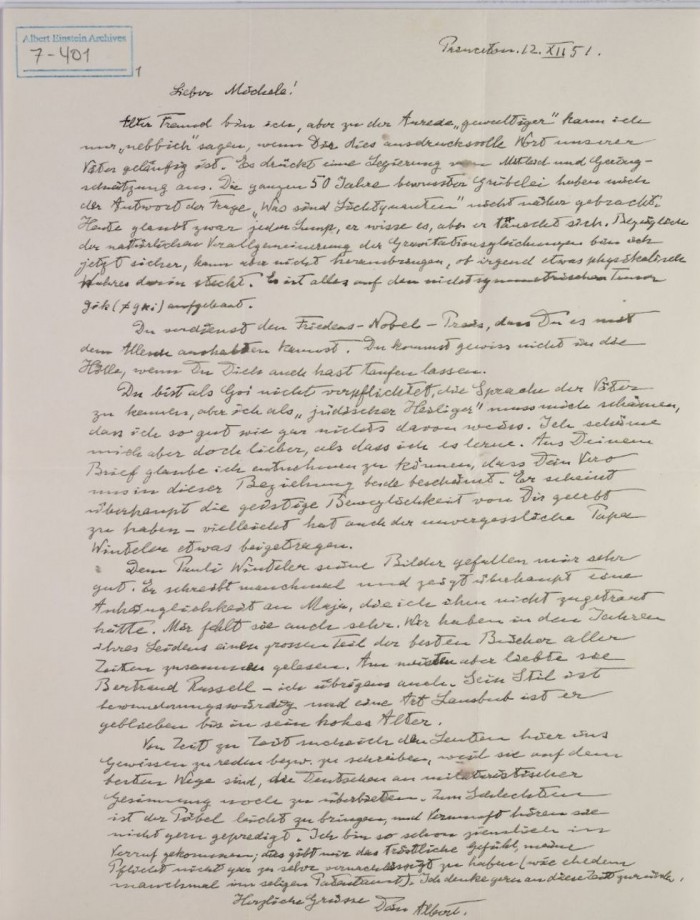 Albert Einstein Archives
7-401
1
Princeton. 12. XII 51.
Lieber Michele!
Alter Freund bin ich, aber zu der Anrede „gewaltiger" kann ich
nur „nebbich" sagen, wenn Dir dies ausdrucksvolle Wort unserer
Väter geläufig ist. Es drückt eine Legierung von Mitleid und Gering-
schätzung aus. Die ganzen 50 Jahre bewusster Grübelei haben mich
der Antwort der Frage „Was sind Lichtquanten" nicht näher gebracht.
Heute glaubt zwar jeder Lump, er wisse es, aber er täuscht sich. Bezüglich
der natürlichen Verallgemeinerung der Gravitationsgleichungen bin ich
jetzt sicher, kann aber nicht herausbringen, ob irgend etwas physikalisch
Wahres darin steckt. Es ist alles auf dem nichtsymmetrischen Tensor
gik (≠ gki) aufgebaut.
Du verdienst den Friedens-Nobel-Preis, dass Du es mit
dem aushalten kannst. Du kommst gewiss nicht in die
Hölle, wenn Du Dich auch hast taufen lassen.
Du bist als Goi nicht verpflichtet, die Sprache der Väter
zu kennen, aber ich als „jüdischer Heiliger" muss mich schämen,
dass ich so gut wie gar nichts davon weiss. Ich schäme
mich aber doch lieber, als dass ich es lerne. Aus Deinem
Brief glaube ich entnehmen zu können, dass Dein Vero
uns in dieser Beziehung beide beschämt. Er scheint
überhaupt die geistige Beweglichkeit von Dir geerbt
zu haben – vielleicht hat auch der unvergessliche Papa
Winteler etwas beigetragen.
Dem Pauli Winteler seine Bilder gefallen mir sehr
gut. Er schreibt manchmal und zeigt überhaupt eine
Anhänglichkeit an Maja, die ich ihm nicht zugetraut
hätte. Mir fehlt sie auch sehr. Wir haben in den Jahren
ihres Leidens einen grossen Teil der besten Bücher aller
Zeiten zusammen gelesen. Am meisten aber liebte sie
Bertrand Russell – ich übrigens auch. Sein Stil ist
bewunderungswürdig und eine Art Lausbub ist er
geblieben bis in sein hohes Alter.
Von Zeit zu Zeit suche ich den Leuten hier ins
Gewissen zu reden bezw. zu schreiben, weil sie auf dem
besten Wege sind, die Deutschen an militaristischer
Gesinnung noch zu überbieten. Zum Schlechten
ist der Pöbel leicht zu bringen, und Vernunft hören sie
nicht gern gepredigt. Ich bin so schon ziemlich in
Verruf gekommen; das gibt mir das tröstliche Gefühl, meine
Pflicht nicht gar zu sehr vernachlässigt zu haben (wie ehedem
manchmal im seligen Patentamt). Ich denke gern an diese Zeit zurück.
Herzliche Grüsse Dein Albert.